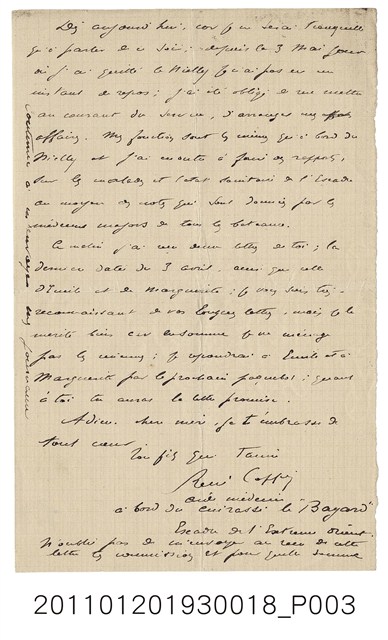 Dès aujourd'hui, car je ne serai tranquille
qu'à partir de ce soir; depuis le 3 Mai jour
où j'ai quitté le Nielly je n'ai pas eu un
instant de repos; j'ai été obligé de me mettre
au courant du service, d'arranger mes
affaires. Mes fonctions sont les mêmes qu'à bord du
Nielly et j'ai ensuite à faire des rapports,
sur les malades et l'état sanitaire de l'Escadre
au moyen des notes qui sont données par les
médecins majors de tous les bateaux.
Ce matin j'ai reçu deux lettres de toi; la
dernière date du 3 avril, ainsi que celle
d'Emile et de Marguerite; je vous suis très
reconnaissant de vos longues lettres, mais je le
mérite bien car en somme je ne ménage
pas les miennes; je répondrai à Emile et à
Marguerite par le prochain paquebot; quant
à toi tu auras la lettre promise.
Adieu, cher mère, je t'embrasse de
tout cœur.
Ton fils qui t'aime
René Coppin
aide médecin
à bord du cuirassé le "Bayard"
Escadre de l'Extrême Orient.
N'oublie pas de m'envoyer au reçu de cette
lettre les commissions et pour quelle somme
continue à m'envoyer les journaux
201101201930018_P003